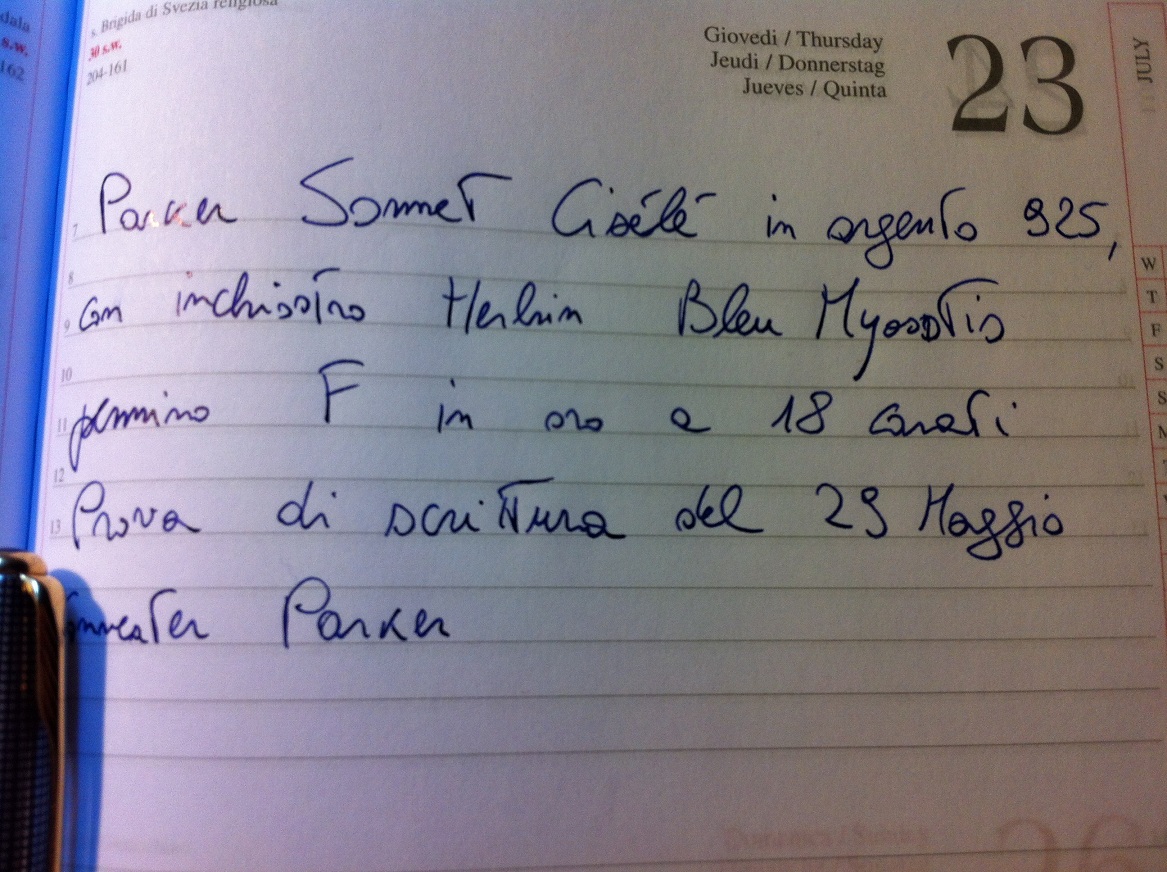 dala
s.w.
162
s. Brigida di Svezia religiosa
30 s.w.
204-161
Giovedi / Thursday
Jeudi / Donnerstag
Jueves / Quinta
23
JULY
Parker Sonnet Ciselé in argento 925,
con inchiostro Herbin Bleu Myosotis
pennino F in oro a 18 carati
Prova di scrittura del 29 Maggio
Converter Parker
7
8
9
10
11
12
13
W
T
F
S
S
M